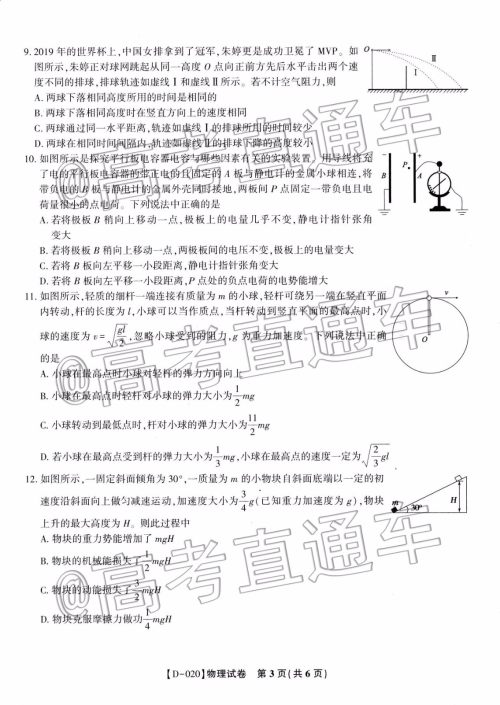 9. 2019 年的世界杯上,中国女排拿到了冠军,朱婷更是成功卫冕了 MVP。如
图所示,朱婷正对球网跳起从同一高度 O 点向正前方先后水平击出两个速
度不同的排球,排球轨迹如虚线Ⅰ和虚线Ⅱ所示。若不计空气阻力,则
A. 两球下落相同高度所用的时间是相同的
B. 两球下落相同高度时在竖直方向上的速度相同
C. 两球通过同一水平距离,轨迹如虚线Ⅰ的排球所用的时间较少
D. 两球在相同时间间隔内,轨迹如虚线Ⅱ的排球下降的高度较小
O
Ⅰ
Ⅱ
10. 如图所示是探究平行板电容器电容与哪些因素有关的实验装置。用导线将充
了电的平行板电容器的带正电的且固定的 A 板与静电计的金属小球相连,将
带负电的 B 板与静电计的金属外壳同时接地,两板间 P 点固定一带负电且电
荷量很小的点电荷。下列说法中正确的是
A. 若将极板 B 稍向上移动一点,极板上的电量几乎不变,静电计指针张角
变大
B. 若将极板 B 稍向上移动一点,两极板间的电压不变,极板上的电量变大
C. 若将 B 板向左平移一小段距离,静电计指针张角变大
D. 若将 B 板向左平移一小段距离,P 点处的负点电荷的电势能增大
B
P
A
11. 如图所示,轻质的细杆一端连接有质量为 m 的小球,轻杆可绕另一端在竖直平面
内转动,杆的长度为 l,小球可以当作质点,当杆转动到竖直平面的最高点时,小
球的速度为 v=√(gl/2),忽略小球受到的阻力,g 为重力加速度。下列说法中正确
的是
A. 小球在最高点时小球对轻杆的弹力方向向上
B. 小球在最高点时轻杆对小球的弹力大小为1/2 mg
C. 小球转动到最低点时,杆对小球的弹力大小为11/2 mg
D. 若小球在最高点受到杆的弹力大小为1/3 mg,小球在最高点的速度一定为√(2/3 gl)
v
O
12. 如图所示,一固定斜面倾角为 30°,一质量为 m 的小物块自斜面底端以一定的初
速度沿斜面向上做匀减速运动,加速度大小为3/4 g(已知重力加速度为 g),物块
上升的最大高度为 H。则此过程中
A. 物块的重力势能增加了 mgH
B. 物块的机械能损失了1/2 mgH
C. 物块的动能损失了3/2 mgH
D. 物块克服摩擦力做功1/4 mgH
m
30°
H
@高考直通车
@高考直通车
@高考直通车
【D-020】物理试卷 第 3 页(共 6 页)